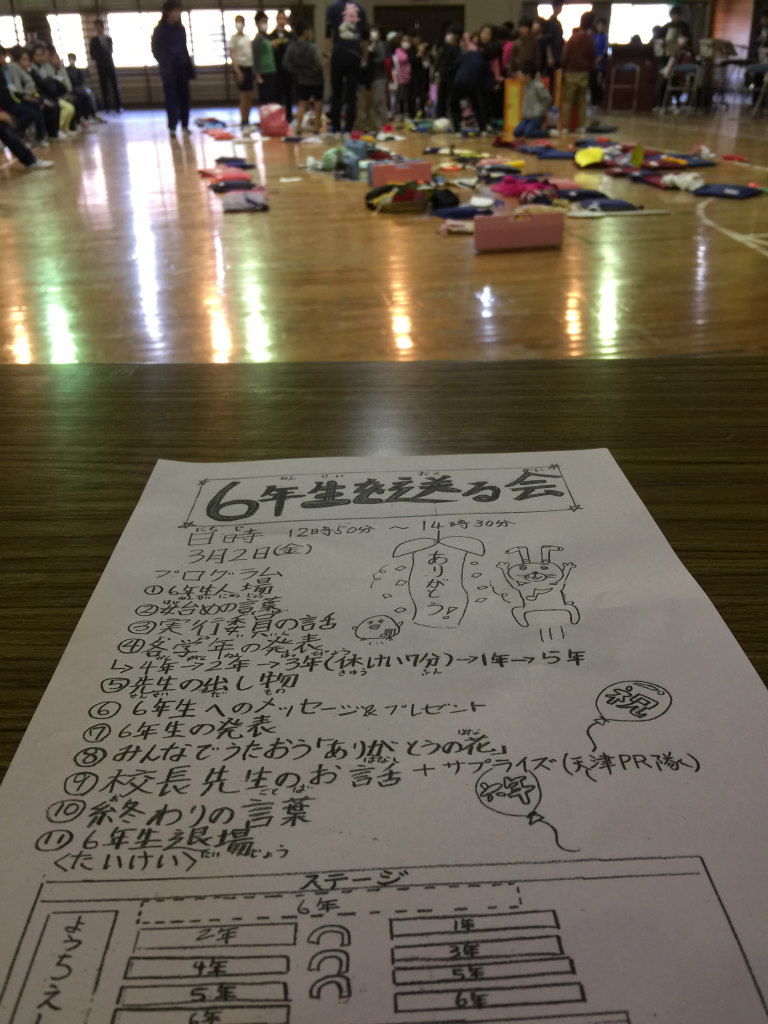 6年生を送る会
日時 12時50分 ～ 14時30分
3月2日(金)
ありがとう!
プログラム
①6年生入場
②始めの言葉
③実行委員の話
④各学年の発表
↳4年→2年→3年(休けい7分)→1年→5年
⑤先生の出し物
⑥6年生へのメッセージ&プレゼント
⑦6年生の発表
⑧みんなでうたおう「ありがとうの花」
⑨校長先生のお話+サプライズ(天津PR隊)
⑩終わりの言葉
⑪6年生退場
祝
六年
<たいけい>
ステージ
6年
2年 1年
4年 3年
5年 5年
6年 6年
ようちえん